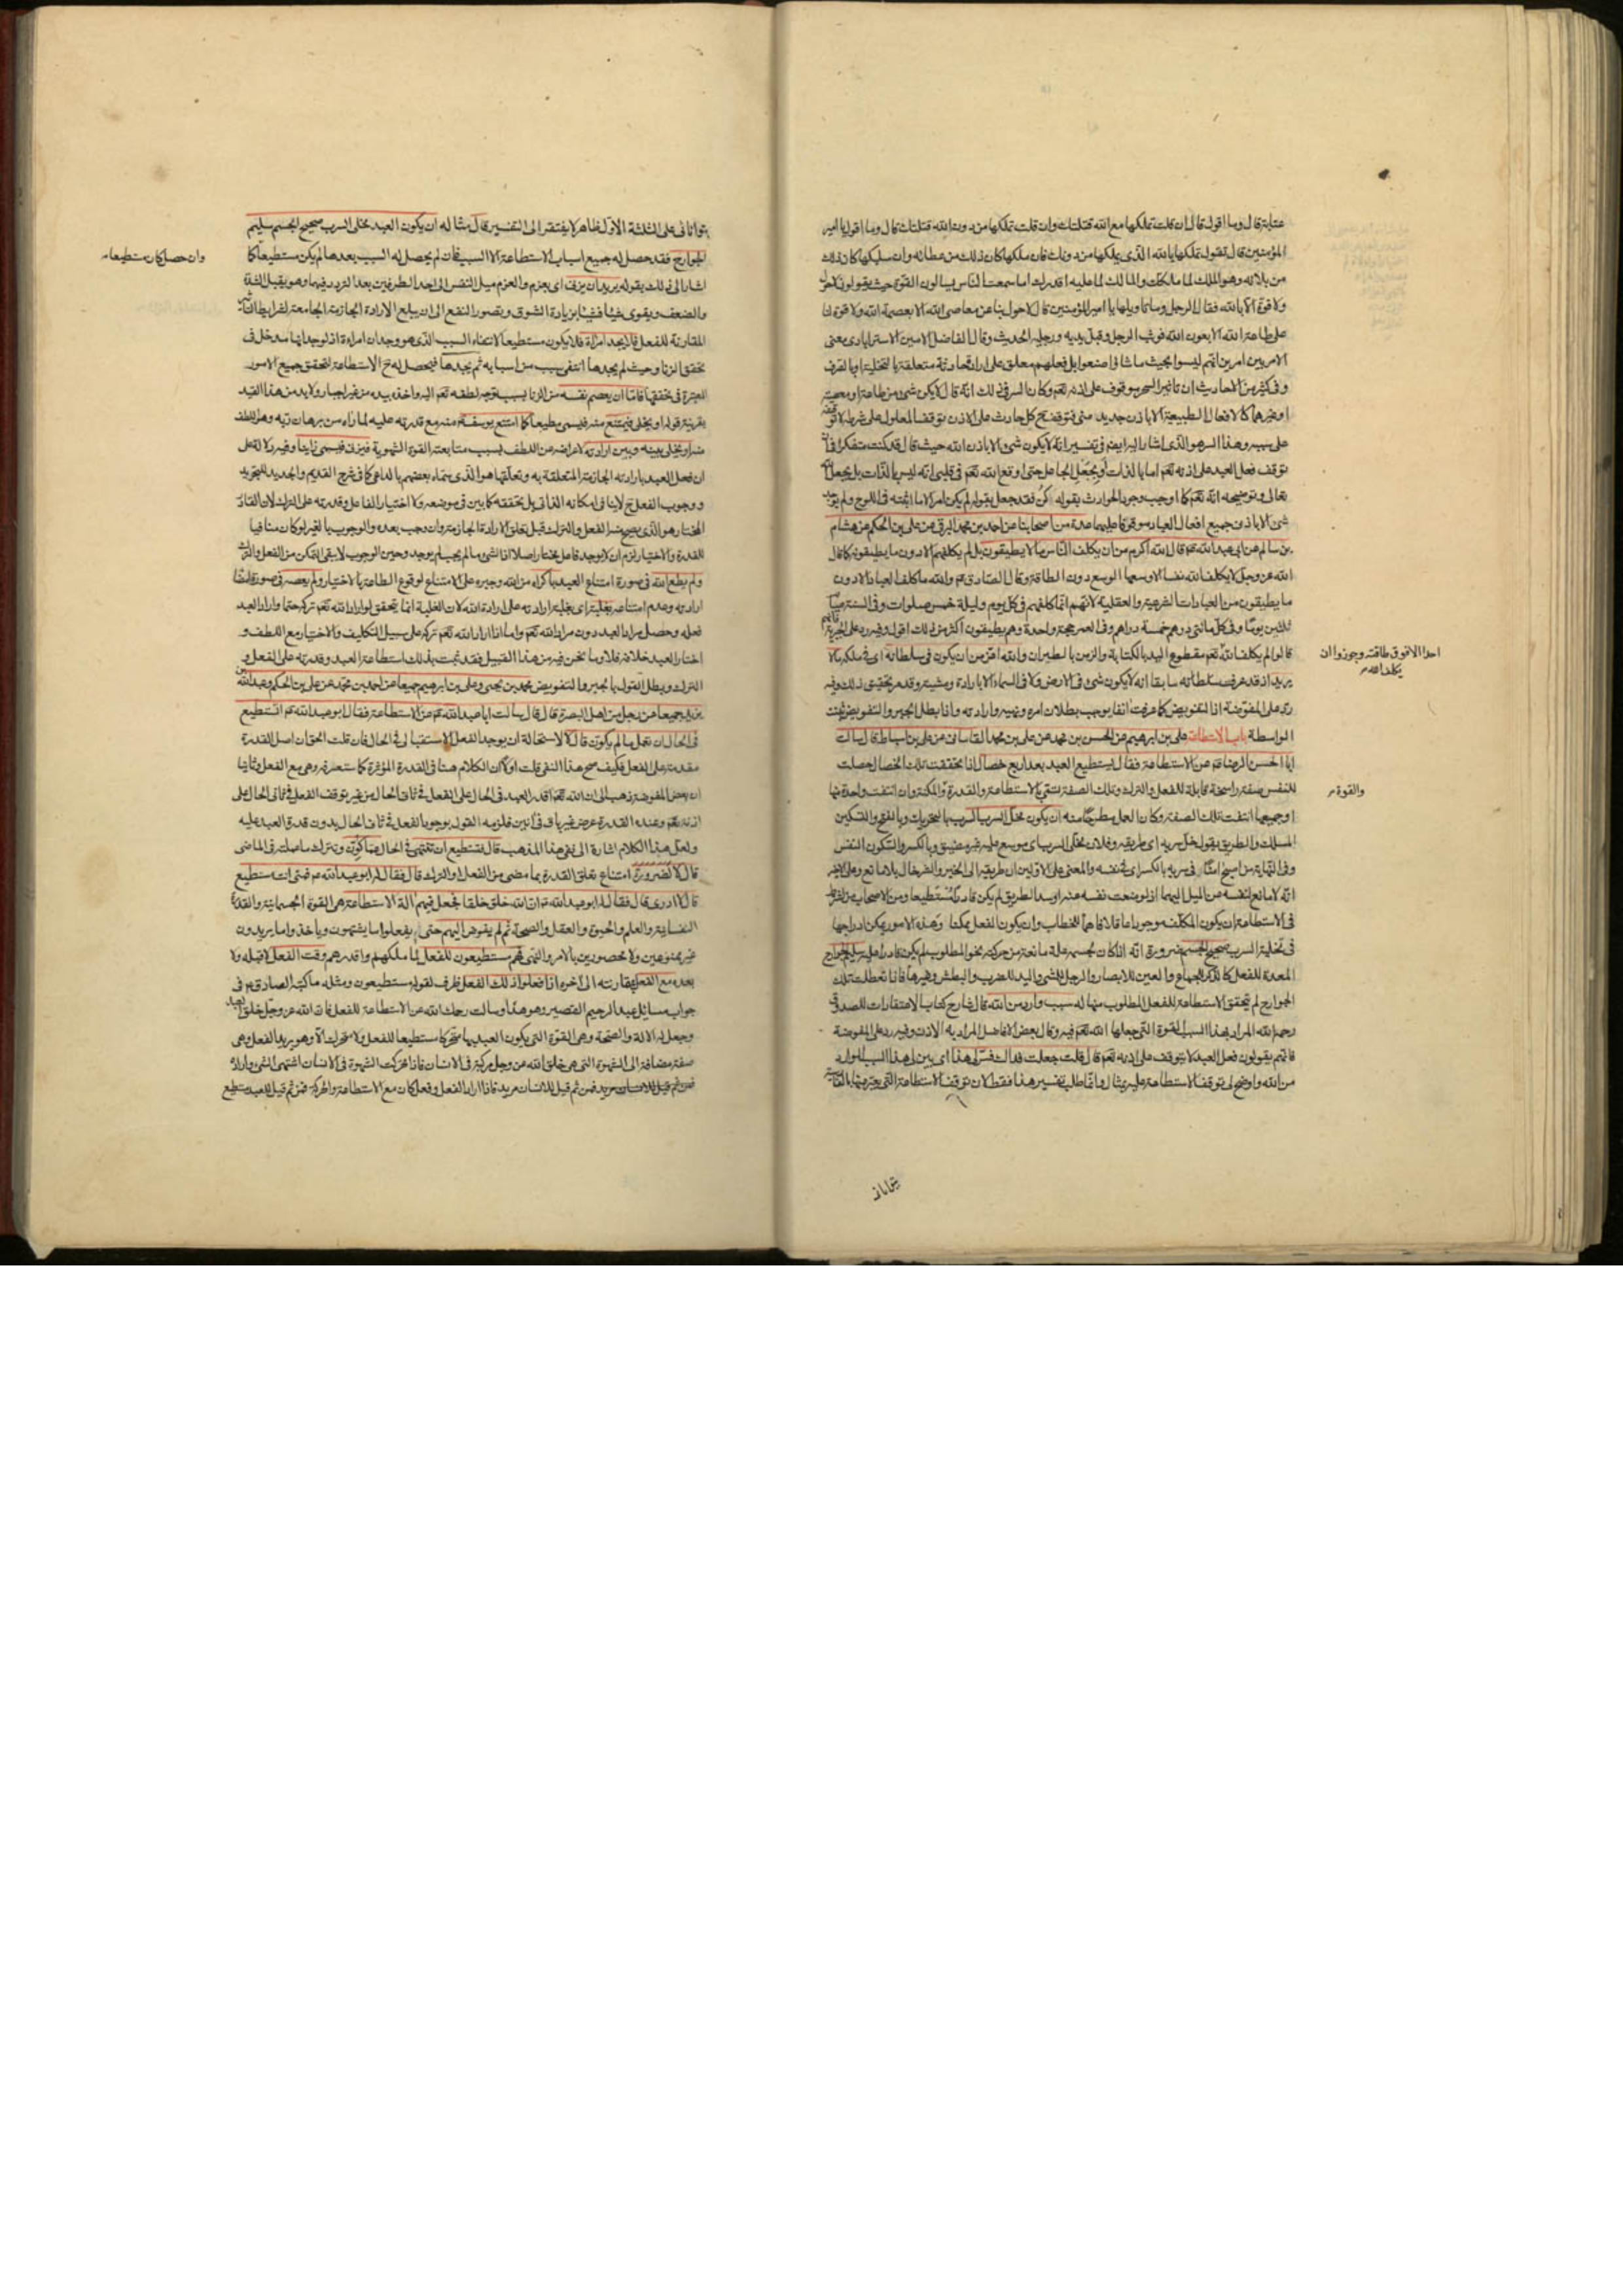 عتابة قال وما اقول قال ان قلت تملكها مع الله قتلتك وان قلت تملكها من دون الله قتلتك قال وما اقول يا امير
المؤمنين قال تقول تملكها بالله الذى يملكها من دونك فان ملكها كان ذلك من عطائه وان سلبكها كان ذلك
من بلائه وهو الملك لما ملكك والمالك لما عليه اقدرك اما سمعت الناس يسالون القوة حيث يقولون لا حول
ولا قوة الا بالله فقال الرجل وما تاويلها يا امير المؤمنين قال لا حول بنا عن معاصى الله الا بعصمة الله ولا قوة لنا
على طاعة الله الا بعون الله فوثب الرجل وقبل يديه ورجليه الحديث وقال الفاضل الامين الاسترابادى معنى
الامر بين امرين انهم ليسوا بحيث ما شاؤا صنعوا بل فعلهم معلق على ارادة حادثة متعلقة بالتخلية او بالصرف
وفى كثير من الاحاديث ان تاثير السحر موقوف على اذنه تعم وكان السر فى ذلك انه قال لا يكن شىء من طاعة او معصية
او غيرهما كالافعال الطبيعية الا باذن جديد منى فتوقف ح كل حادث على الاذن توقف المعلول على شرطه لا توقفه
على سببه وهذا السر هو الذى اشار اليه ايضم فى تفسير انه لا يكون شىء الا باذن الله حيث قال قد كنت متفكرا فى ان
توقف فعل العبد على اذنه تعم اما بالذات او بجعل الجاعل حتى اوقع الله تعم فى قلبى انه ليس بالذات بل بجعل الله
تعالى وتوضيحه انه تعم كما اوجب وجود الحوادث بقوله كن فقد جعل بقوله لم يكن امر الا ما اثبته فى اللوح ولم يوجد
شىء الا باذنى جميع افعال العباد موقوفا عليهما عدة من اصحابنا عن احمد بن محمد البرقى عن على بن الحكم عن هشام
بن سالم عن ابى عبد الله عم قال الله اكرم من ان يكلف الناس ما لا يطيقون بل لم يكلفهم الا دون ما يطيقونه كما قال
الله عز وجل لا يكلف الله نفسا الا وسعها الوسع دون الطاقة وقال الصادق عم والله ما كلف العباد الا دون
ما يطيقون من العبادات الشرعية والعقلية لانهم انما كلفهم فى كل يوم وليلة خمس صلوات وفى السنة صيام
ثلثين يوما وفى كل مائتى درهم خمسة دراهم وفى العمر حجة واحدة وهم يطيقون اكثر من ذلك اقول وفيه رد على الجبرية فانهم
قالوا لم يكلف الله تعم مقطوع اليد بالكتابة والزمن بالطيران والله اعز من ان يكون فى سلطانه اى فى ملكه ما لا
يريد اذ قد عرفت سلطانه سابقا انه لا يكون شىء فى الارض ولا فى السماء الا بارادة ومشية وقد مر تحقيق ذلك وفيه
رد على المفوضة اذا التفويض كما عرفت آنفا يوجب بطلان امره ونهيه وارادته واذا بطل الجبر والتفويض ثبتت
الواسطة باب الاستطاعة على بن ابرهيم عن الحسن بن محمد عن على بن محمد القاسانى عن على بن اسباط قال سالت
ابا الحسن الرضا عم عن الاستطاعة فقال يستطيع العبد بعد اربع خصال اذا تحققت تلك الخصال حصلت
للنفس صفة راسخة قابلة للفعل والترك وتلك الصفة تسمى بالاستطاعة والقدرة والمكنة وان انتفت واحدة منها
او جميعها انتفت تلك الصفة وكان العبد مطبوعا منه ان يكون مخلى السرب السرب بالتحريك وبالفتح والتسكين
المسلك والطريق يقول خل سربه اى طريقه وفلان مخلى السرب اى موسع عليه غير مضيق وبالكسر والسكون النفس
وفى النهاية من اصبح امنا فى سربه بالكسر اى فى نفسه والمعنى على الاولين ان طريقه الى الخير والشر خال بلا مانع وعلى الاخير
انه لا مانع لنفسه من الميل اليهما اذ لو منعت نفسه عنه او سد الطريق لم يكن قادرا مستطيعا ومن الاصحاب من
فى الاستطاعة ان يكون المكلف موجودا عاقلا فاهما للخطاب وان يكون الفعل ممكنا وهذه الامور يمكن ادراجها
فى تخلية السرب صحيح الجسم ضرورة انه اذا كان لجسمه علة مانعة من حركته نحو المطلوب لم يكن قادرا عليه سليم الجوارح
المعدة للفعل كالذكر للجماع والعين للابصار والرجل للمشى واليد للضرب والبطش وغيرها فاذا تعطلت تلك
الجوارح لم تتحقق الاستطاعة للفعل المطلوب منها له سبب وارد من الله قال شارح كتاب الاعتقادات للصدوق
رحمه الله المراد بهذا السبب القوة التى جعلها الله تعم فيه وقال بعض الافاضل المراد به الاذن وفيه رد على المفوضة
فانهم يقولون فعل العبد لا يتوقف على اذنه تعم قال قلت جعلت فداك فسر لى هذا اى بين لى هذا السبب الوارد
من الله واوضح لى توقف الاستطاعة عليه بمثال وانما طلب تفسير هذا فقط لان توقف الاستطاعة التى يعبر عنها بالقدرة
احدا الا فوق طاقته وجوزوا ان
يكلف الله
والقوة
بتوانا فى على الثلثة الاول ظاهر لا يفتقر الى التفسير قال مثاله ان يكون العبد مخلى السرب صحيح الجسم سليم
الجوارح فقد حصل له جميع اسباب الاستطاعة الا السبب فان لم يحصل له السبب بعدها لم يكن مستطيعا كما
اشار الى ذلك بقوله يريد ان يزنى اى يجزم والعزم ميل النفس الى احد الطرفين بعد التردد فيهما وهو يقبل الشدة
والضعف ويقوى شيئا فشيئا بزيادة الشوق وتصور النفع الى ان يبلغ الارادة الجازمة الجامعة لشرايط التاثير
المقارنة للفعل فلا يجد امراة فلا يكون مستطيعا لانتفاء السبب الذى هو وجدان امراة اذ لوجدانها مدخل فى
تحقق الزنا وحيث لم يجدها انتفى سبب من اسبابه ثم يجدها فيحصل له ح الاستطاعة لتحقق جميع الامور
المعتبرة فى تحققها فاما ان يعصم نفسه من الزنا بسبب توجه لطفه تعم اليه واخذه بيده من غير اجبار ولا بد من هذا القيد
بقرينة قوله او يخلى فيمتنع منه فيسمى مطيعا كما امتنع يوسف عم منه مع قدرته عليه لما راه من برهان ربه وهو اللطف
منه او يخلى بينه وبين ارادته لاعراضه عن اللطف بسبب متابعة القوة الشهوية فيزنى فيسمى زانيا وفيه دلالة على
ان فعل العبد بارادته الجازمة المتعلقة به وتعلقها هو الذى سماه بعضهم بالداعى كما فى شرح القديم والجديد للتجريد
ووجوب الفعل ح لا ينافى امكانه الذاتى بل يحققه كما بين فى موضعه ولا اختيار الفاعل وقدرته على الترك لان القادر
المختار هو الذى يصح منه الفعل والترك قبل تعلق الارادة الجازمة وان وجب بعده والوجوب بالغير لو كان منافيا
للقدرة والاختيار لزم ان لا يوجد فاعل مختار اصلا اذا الشىء ما لم يجب لم يوجد وحين الوجوب لا يبقى التمكن من الفعل والترك
ولم يطع الله فى صورة امتناع العبد باكراه من الله وجبره على الامتناع لوقوع الطاعة بالاختيار ولم يعصه فى صورة
ارادته وعدم امتناعه بغلبة اى بغلبة ارادته على ارادة الله لان الغلبة انما يتحقق لو اراد الله تعم تركه حتما واراد العبد
فعله وحصل مراد العبد دون مراد الله تعم واما اذا اراد الله تعم تركه على سبيل التكليف والاختيار مع اللطف و
اختار العبد خلافه فلا وما نحن فيه من هذا القبيل فقد ثبت بذلك استطاعة العبد وقدرته على الفعل و
الترك وبطل القول بالجبر والتفويض محمد بن يحيى وعلى بن ابرهيم جميعا عن احمد بن محمد عن على بن الحكم وعبد الله بن
يزيد جميعا عن رجل من اهل البصرة قال قال سالت ابا عبد الله عم عن الاستطاعة فقال ابو عبد الله عم اتستطيع
فى الحال ان تعمل ما لم يكون قال لا لاستحالة ان يوجد الفعل الاستقبالى فى الحال فان قلت الحق ان اصل القدرة
مقدمة على الفعل فكيف صح هذا النفى قلت اولا ان الكلام هنا فى القدرة المؤثرة كما ستعرفه وهى مع الفعل وثانيا
ان بعض المفوضة ذهب الى ان الله تعم اقدر العبد فى الحال على الفعل فى ثانى الحال من غير توقف الفعل فى ثانى الحال على
اذنه تعم وعنده القدرة عرض غير باق فى آنين فلزمه القول بوجود الفعل فى ثانى الحال بدون قدرة العبد عليه
ولعل هذا الكلام اشارة الى نفى هذا المذهب قال فتستطيع ان تنتهى فى الحال عما كون وتترك ما صار فى الماضى
قال لا لضرورة امتناع تعلق القدرة بما مضى من الفعل او الترك قال فقال له ابو عبد الله عم فمتى انت مستطيع
قال لا ادرى قال فقال له ابو عبد الله عم ان الله خلق خلقا فجعل فيهم آلة الاستطاعة هى القوة الجسمانية والقدرة
النفسانية والعلم والحيوة والعقل والصحة ثم لم يفوض اليهم حتى يفعلوا ما يشتهون وياخذوا ما يريدون
غير ممنوعين ولا محصورين بالامر والنهى فهم مستطيعون للفعل لما ملكهم واقدرهم وقت الفعل لا قبله ولا
بعده مع الفعل بمقارنته الى اخره اذا فعلوا ذلك الفعل ظرف لقوله مستطيعون ومثله ما كتبه الصادق عم فى
جواب مسائل عبد الرحيم القصير وهو هذا وسالت رحمك الله عن الاستطاعة للفعل فان الله عز وجل خلق العبد
وجعل له الالة والصحة وهى القوة التى يكون العبد بها متحركا مستطيعا للفعل ولا متحرك الا وهو يريد الفعل وهى
صفة مضافة الى الشهوة التى هى خلق الله عز وجل مركبة فى الانسان فاذا تحركت الشهوة فى الانسان اشتهى الشىء واراده
فمن ثم قيل للانسان مريد فاذا اراد الفعل وفعل كان مع الاستطاعة والحركة فمن ثم قيل للعبد مستطيع
وان حصل كان مستطيعا